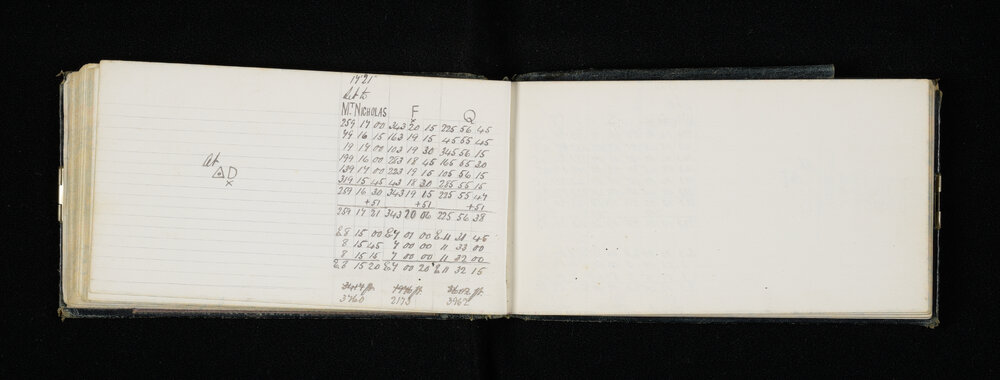 1421
Set to
Mt NICHOLAS F Q
259 17 00 343 20 15 225 56 45
79 16 15 163 19 15 45 55 45
19 17 00 103 19 30 345 56 15
199 16 00 283 18 45 165 55 30
139 17 00 223 19 15 105 56 15
319 15 45 43 18 30 285 55 15
259 16 30 343 19 15 225 55 47
+51 +51 +51
259 17 21 343 20 06 225 56 38
At
△D
x
E8 15 00 E7 01 00 E11 31 45
8 15 45 7 00 00 11 33 00
8 15 15 7 00 00 11 32 00
E8 15 20 E7 00 20 E11 32 15
3760 2173 3962